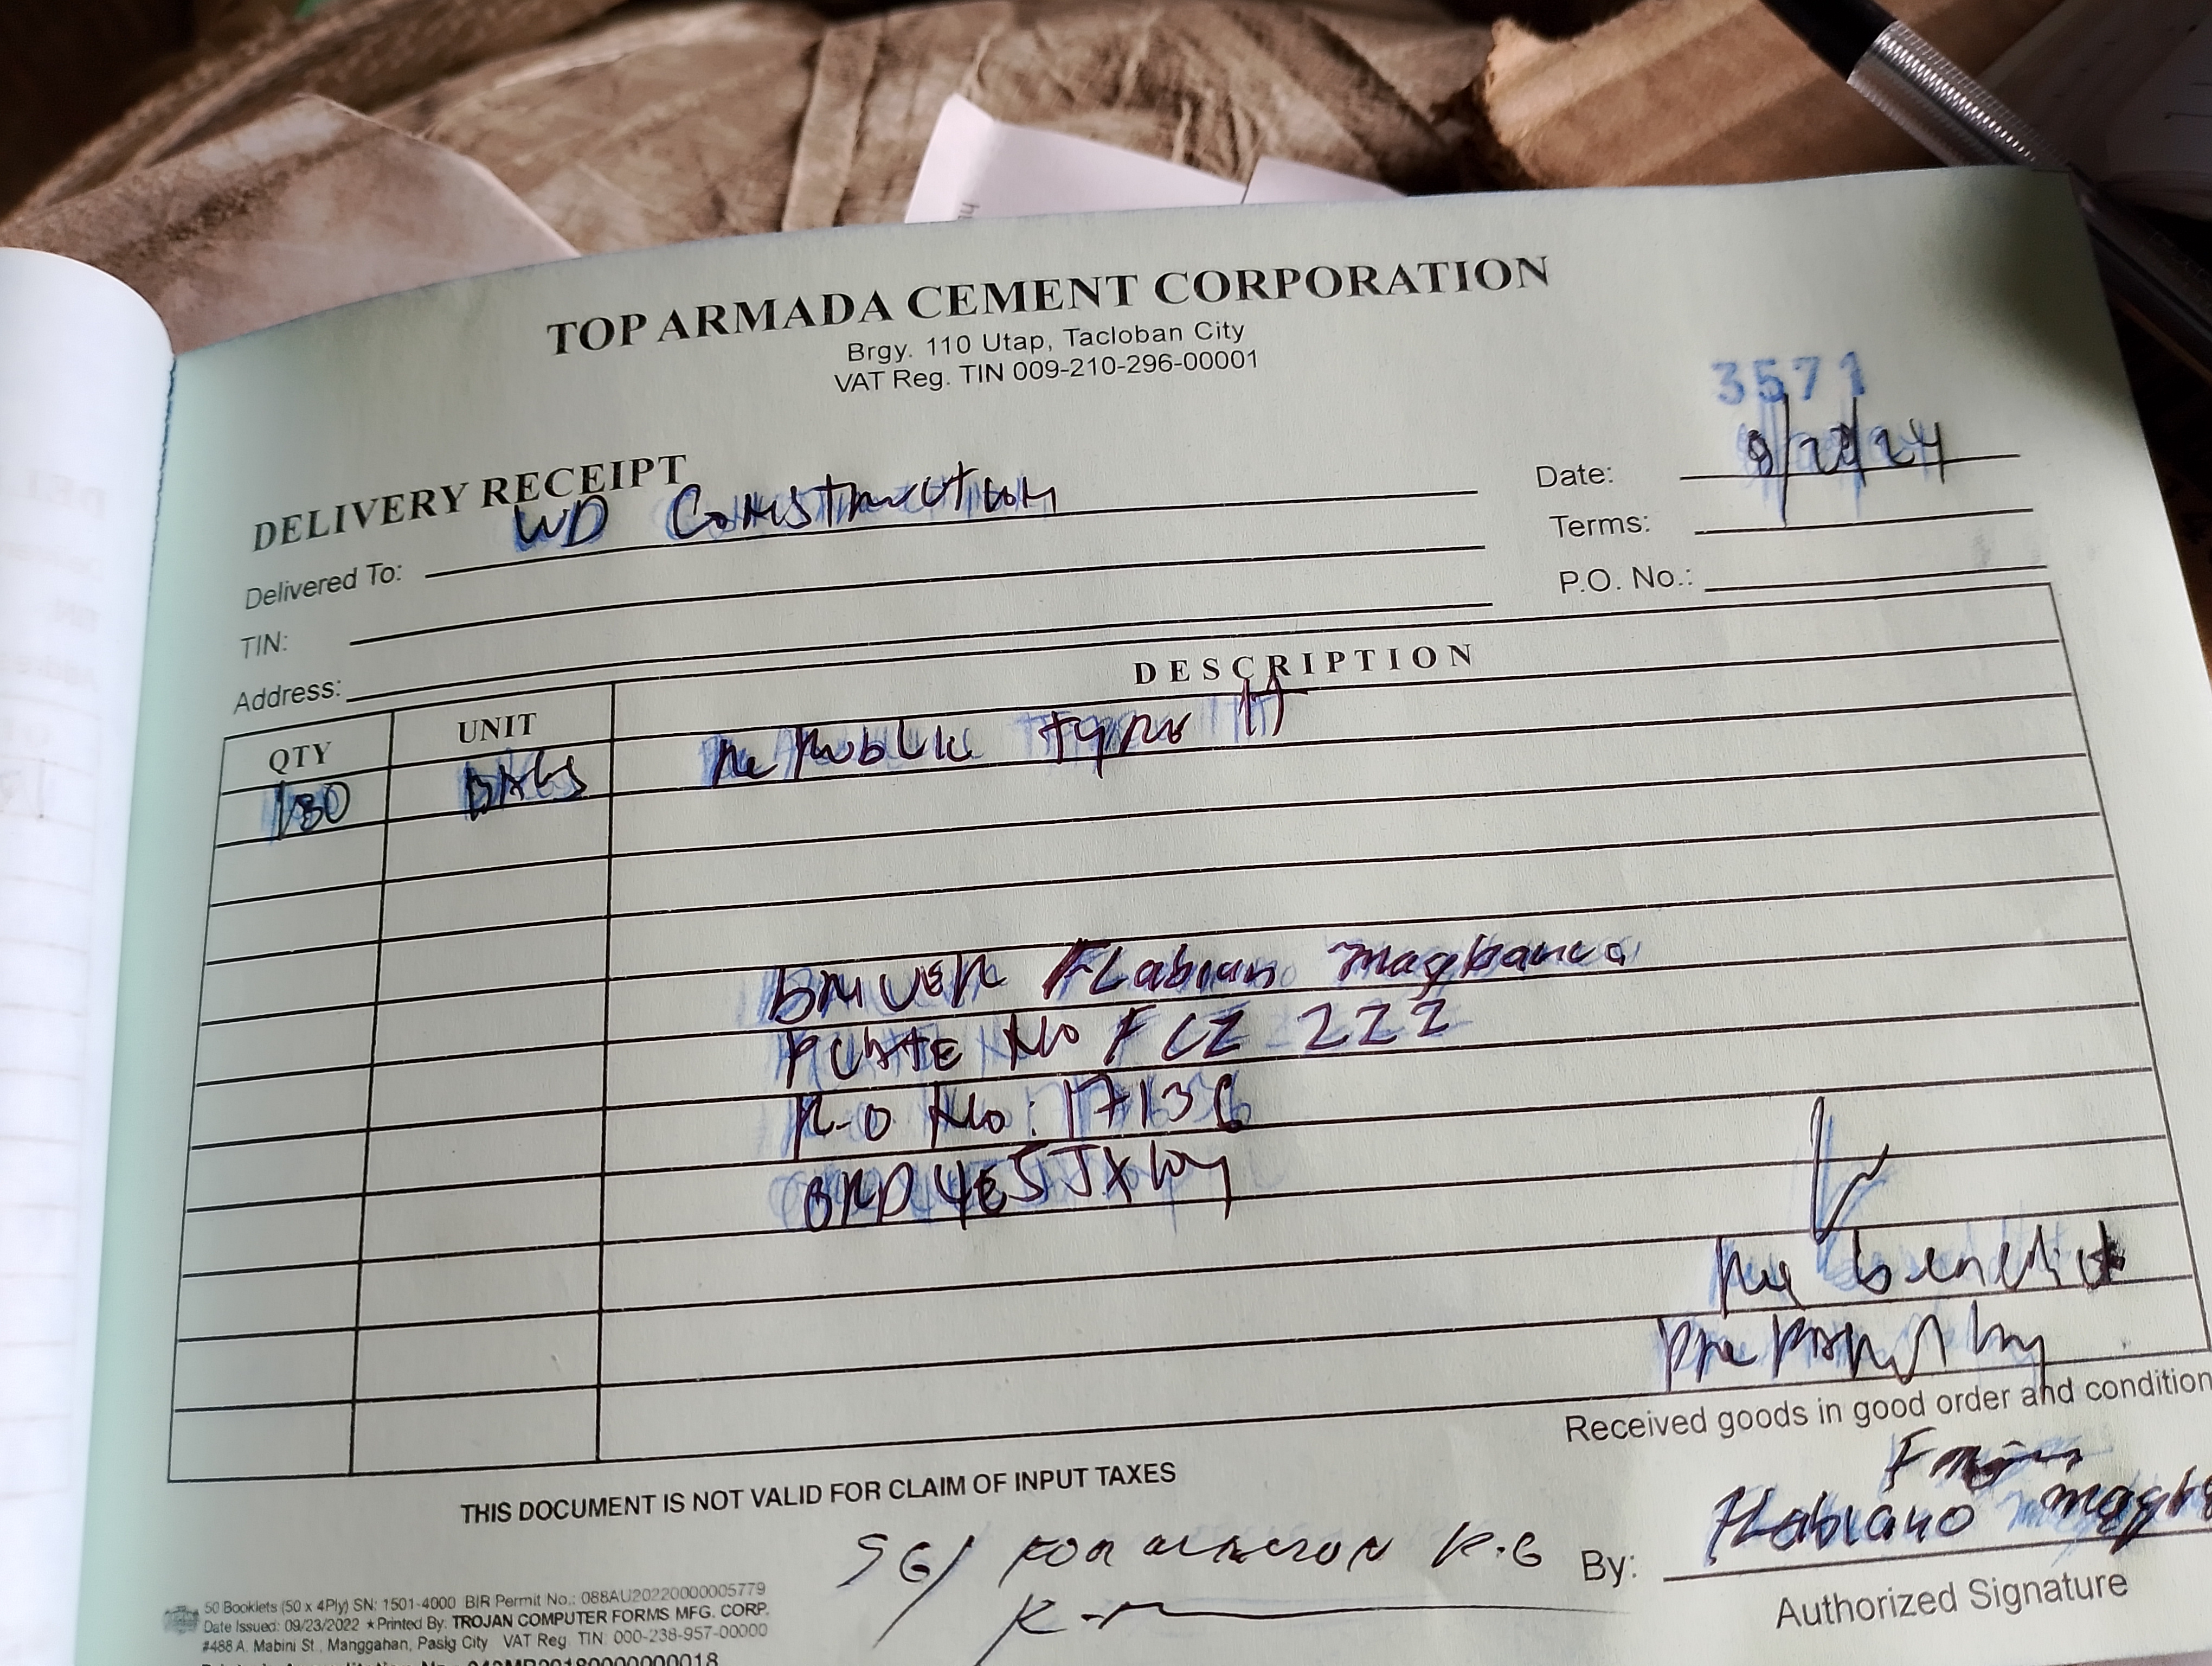 TOP ARMADA CEMENT CORPORATION
Brgy. 110 Utap, Tacloban City
VAT Reg. TIN 009-210-296-00001
3571
DELIVERY RECEIPT
Date: 9/28/24
Delivered To: WD Construction
Terms:
TIN:
P.O. No.:
Address:
QTY UNIT DESCRIPTION
180 BAGS Republic type 1T
DRIVER Flabian Magbanua
PLATE No FCZ 222
R-O No: 17136
ORD4E5JXWY
benedict
Prepared by
Received goods in good order and condition
THIS DOCUMENT IS NOT VALID FOR CLAIM OF INPUT TAXES
SG/
By: Flabiano
Authorized Signature
50 Booklets (50 x 4Ply) SN: 1501-4000 BIR Permit No.: 088AU20220000005779
Date Issued: 09/23/2022 ★Printed By: TROJAN COMPUTER FORMS MFG. CORP.
#488 A. Mabini St., Manggahan, Pasig City VAT Reg. TIN: 000-238-957-00000